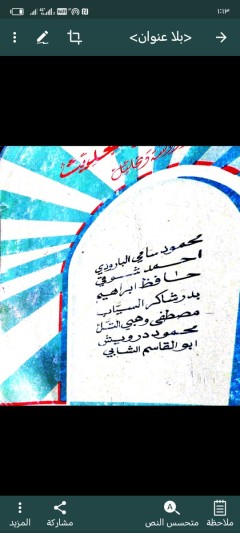 ١:١٣
<بلا عنوان>
محمود سامي البارودي
احمد شوقي
حافظ ابراهيم
بدر شاكر السياب
مصطفى وهبي التل
محمود درويش
ابو القاسم الشابي
المزيد
مشاركة
متحسس النص
ملاحظة